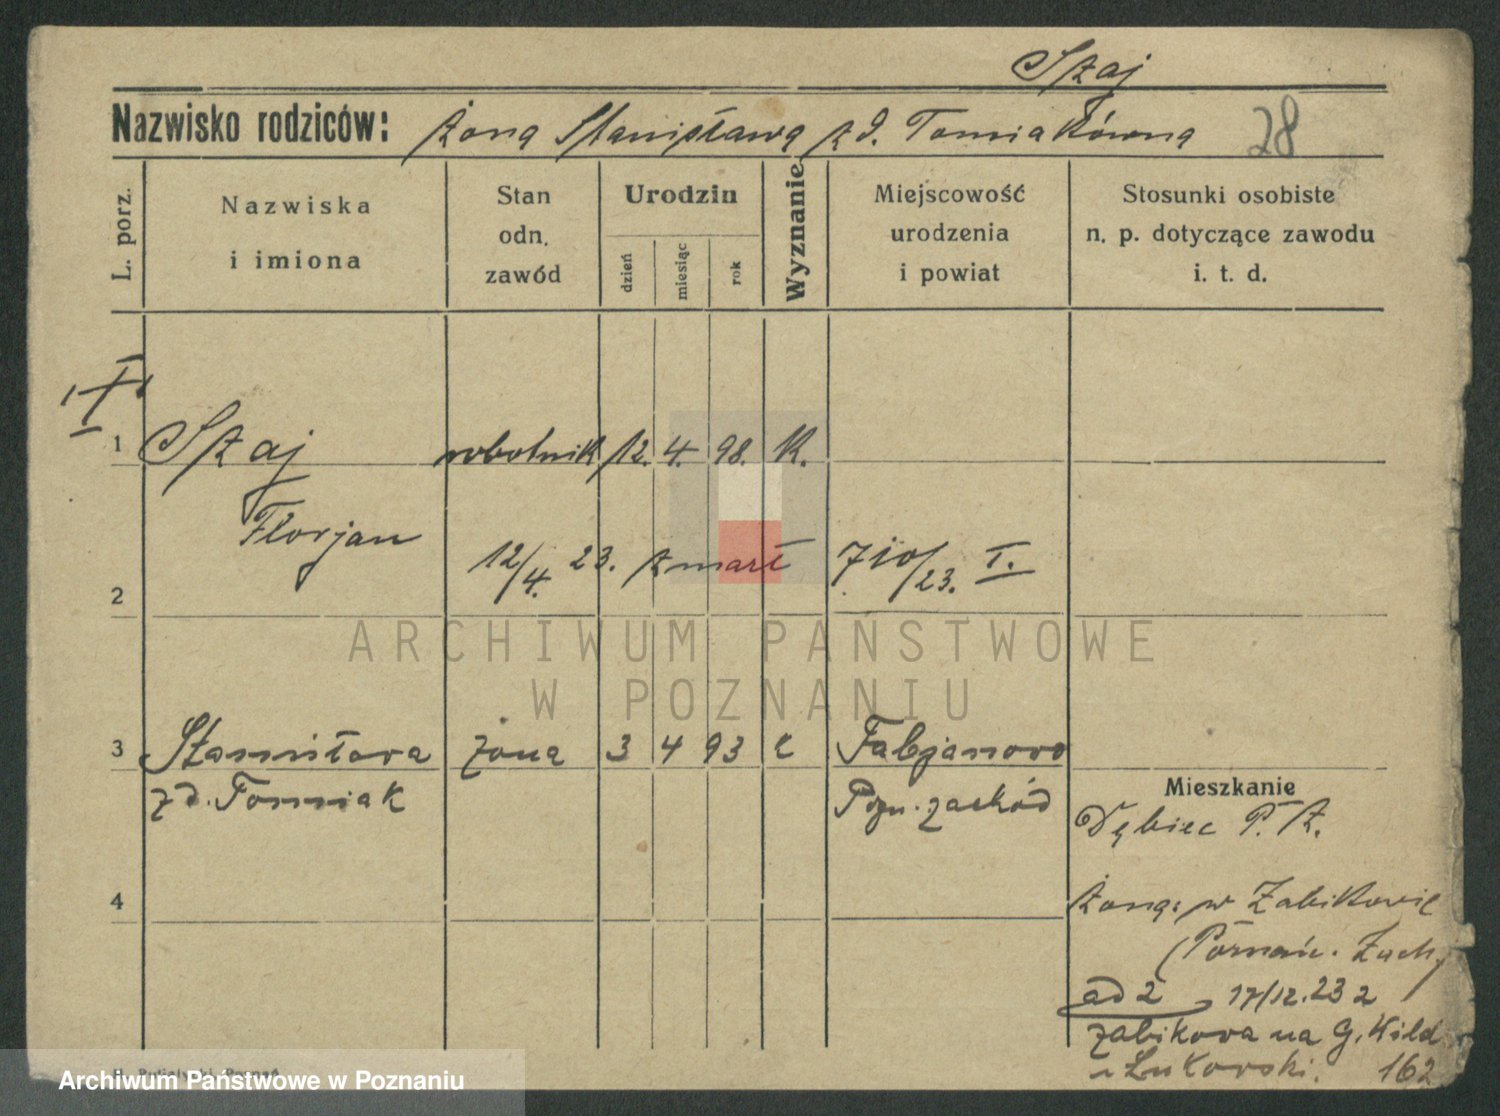 Szaj
Nazwisko rodziców: żona Stanisława zd. Tomiakówna 28
L. porz.
Nazwiska
i imiona
Stan
odn.
zawód
Urodzin
dzień
miesiąc
rok
Wyznanie
Miejscowość
urodzenia
i powiat
Stosunki osobiste
n. p. dotyczące zawodu
i. t. d.
1 Szaj robotnik 12. 4. 98. K.
Florjan
2 12/4. 23. zmarł 710/23. I.
ARCHIWUM PAŃSTWOWE
W POZNANIU
3 Stanisława żona 3 4 93 k Fabjanowo
zd. Tomiak Pozn. zachód
Mieszkanie
Dębiec P. Z.
4
żona: w Żabikowie
(Poznań. Zach.)
ad 2 17/12.23 z
Żabikowa na G. Wild
u Lukowski. 162
Archiwum Państwowe w Poznaniu